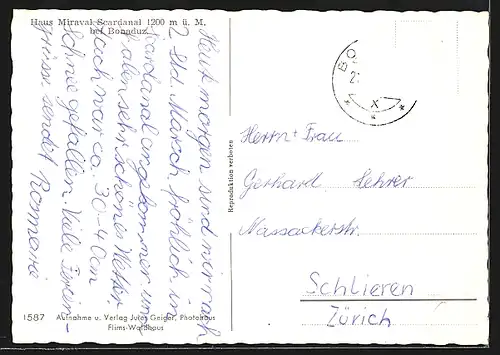 Haus Miraval Scardanal 1200 m ü. M.
bei Bonaduz
Heut morgen sind wir nach
2 Std. Marsch fröhlich in
Scardanal angekommen und
haben sehr schönes Wetter.
Auch war ca. 30-40 cm
Schnee gefallen. Viele Ferien-
grüsse sendet Rosmarie
1587 Aufnahme u. Verlag Jules Geiger, Photohaus
Flims-Waldhaus
Reproduktion verboten
BO
2
X
Herrn + Frau
Gerhard Lehrer
Nassackerstr.
Schlieren
Zürich